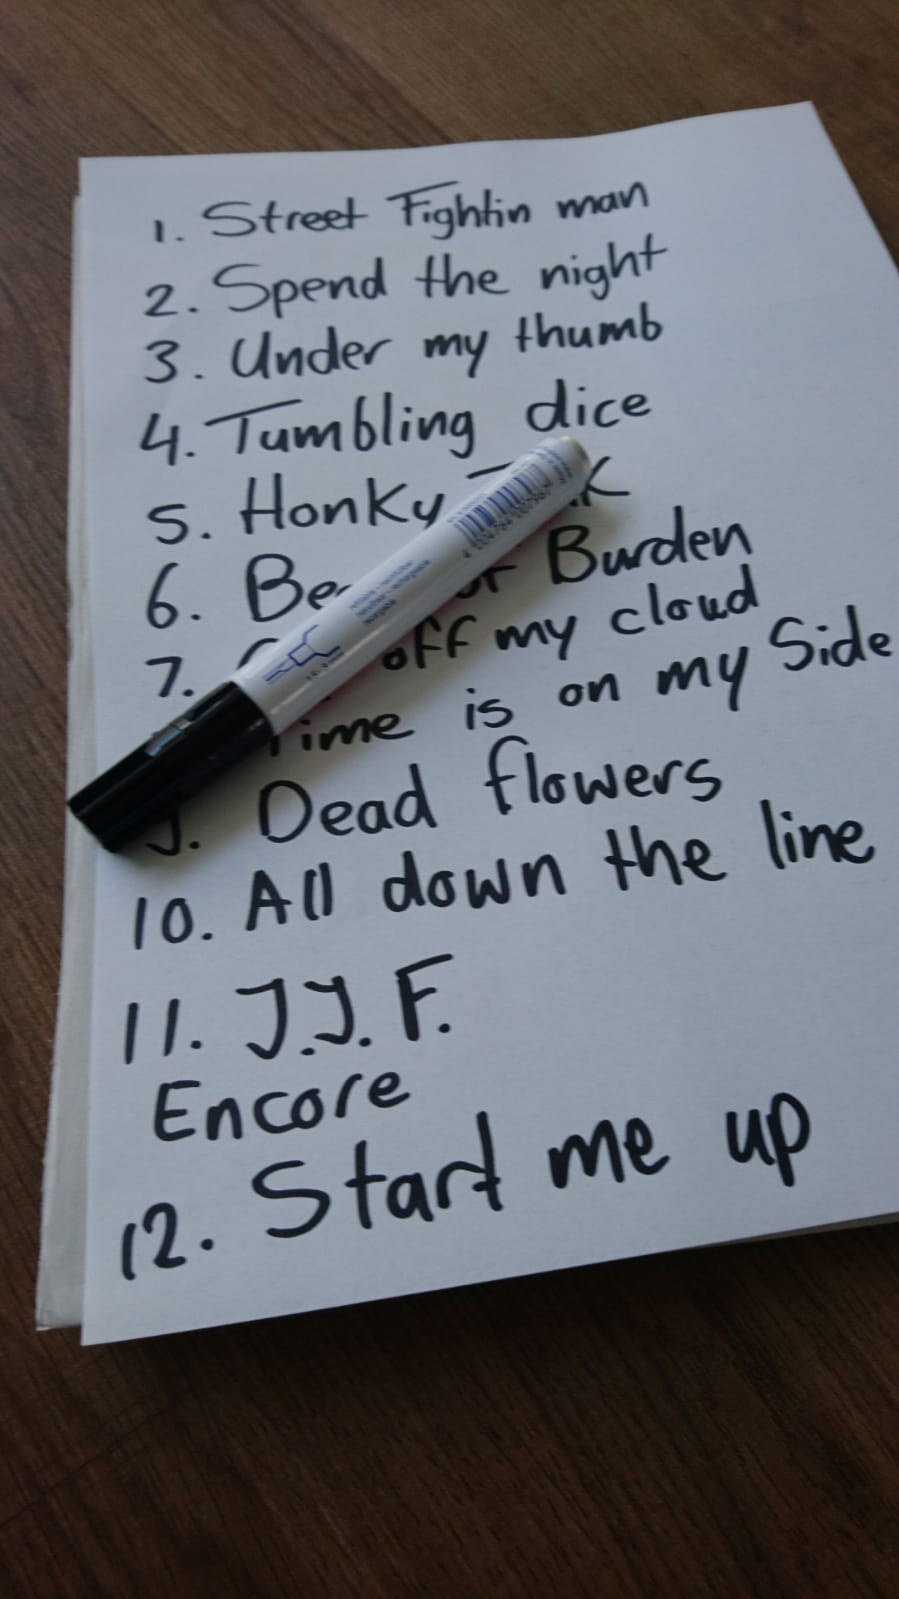 1. Street Fightin man
2. Spend the night
3. Under my thumb
4. Tumbling dice
5. Honky
6. Burden
7. off my cloud
Time is on my Side
9. Dead flowers
10. All down the line
11. J.J. F.
Encore
12. Start me up